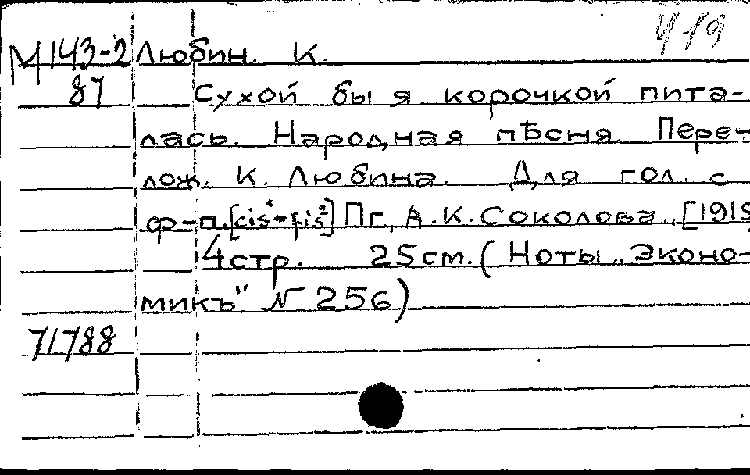 У-19
М143-2 Любин. К.
87 Сухой бы я корочкой пита-
лась. Народная пѣсня. Перет-
лож. К. Любина. Для гол. с
ф-п.[cis¹-fis²] Пг., А.К. Соколова., [1915
4 стр. 25 см. (Ноты „Эконо-
микъ" N 256)
71788